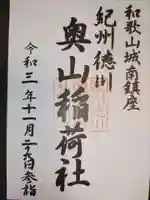 和歌山城南鎮座
紀州徳川
奥山稲荷社
令和三年十一月二十九日参詣